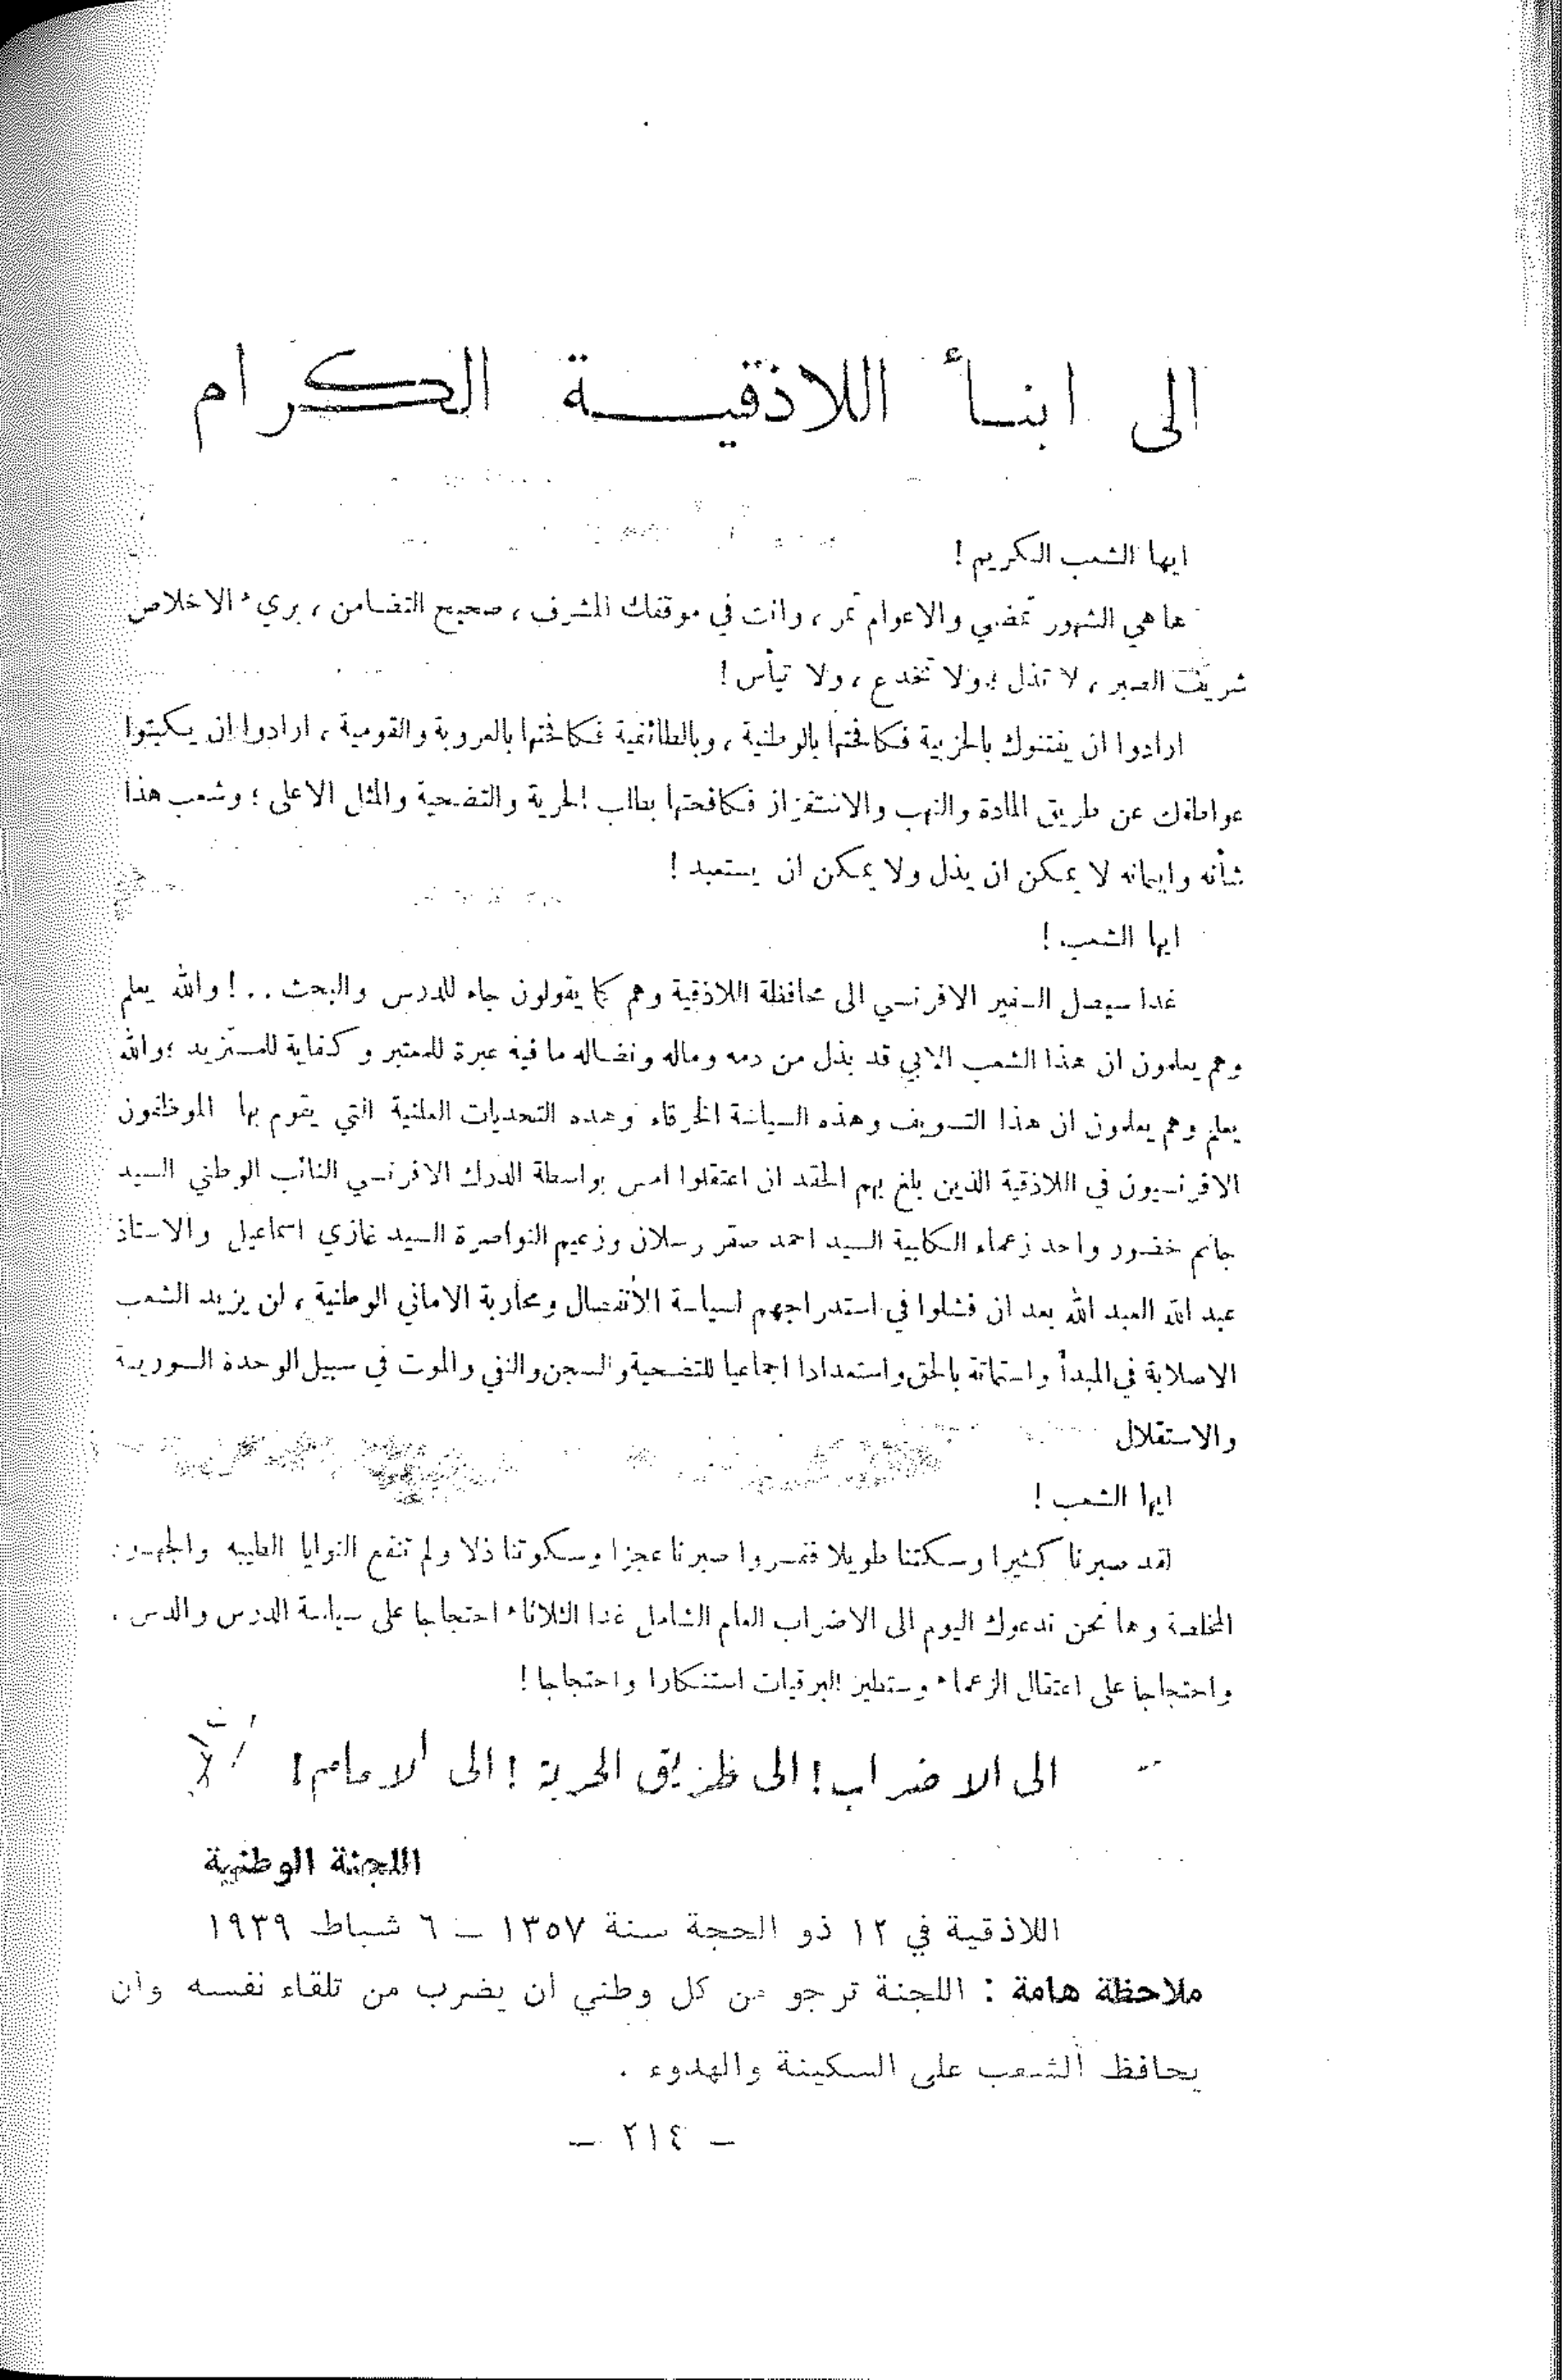 الى ابنأ اللاذقية الكرام
ايها الشعب الكريم !
ها هي الشهور تمضي والاعوام تمر ، وانت في موقفك المشرف ، صحيح التضامن ، بريء الاخلاص
شريف الصبر ، لا تذل ؛ ولا تخدع ، ولا تيأس !
ارادوا ان يفتنوك بالحزبية فكافحتها بالوطنية ، وبالطائفية فكافحتها بالعروبة والقومية ، ارادوا ان يكبتوا
عواطفك عن طريق المادة والنهب والاستفزاز فكافحتها بطلب الحرية والتضحية والمثل الاعلى ؛ وشعب هذا
شأنه وايمانه لا يمكن ان يذل ولا يمكن ان يستعبد !
ايها الشعب !
غدا سيصل السفير الافرنسي الى محافظة اللاذقية وهم كما يقولون جاء للدرس والبحث . . ! والله يعلم
وهم يعلمون ان هذا الشعب الابي قد بذل من دمه وماله ونضاله ما فيه عبرة للمعتبر وكفاية للمستزيد ؛ والله
يعلم وهم يعلمون ان هذا التسويف وهذه السياسة الخرقاء وهذه التحديات العلنية التي يقوم بها الموظفون
الافرنسيون في اللاذقية الذين بلغ بهم الحقد ان اعتقلوا امس بواسطة الدرك الافرنسي النائب الوطني السيد
جانم خضور واحد زعماء الكلبية السيد احمد صقر رسلان وزعيم النواصرة السيد غازي اسماعيل والاستاذ
عبد الله العبد الله بعد ان فشلوا في استدراجهم لسياسة الأنفصال ومحاربة الاماني الوطنية ، لن يزيد الشعب
الا صلابة في المبدأ واستماتة بالحق واستعدادا اجماعيا للتضحية والسجن والنفي والموت في سبيل الوحدة السورية
والاستقلال
ايها الشعب !
لقد صبرنا كثيرا وسكتنا طويلا ففسروا صبرنا عجزا وسكوتنا ذلا ولم تنفع النوايا الطيبه والجهود
المخلصة وها نحن ندعوك اليوم الى الاضراب العام الشامل غدا الثلاثاء احتجاجا على سياسة الدرس والدس .
واحتجاجا على اعتقال الزعماء وستطير البرقيات استنكارا واحتجاجا !
الى الاضراب ! الى طريق الحرية ! الى الامام !
اللجنة الوطنية
اللاذقية في ١٢ ذو الحجة سنة ١٣٥٧ – ٦ شباط ١٩٣٩
ملاحظة هامة : اللجنة ترجو من كل وطني ان يضرب من تلقاء نفسه وان
يحافظ الشعب على السكينة والهدوء .
– ٢١٤ –